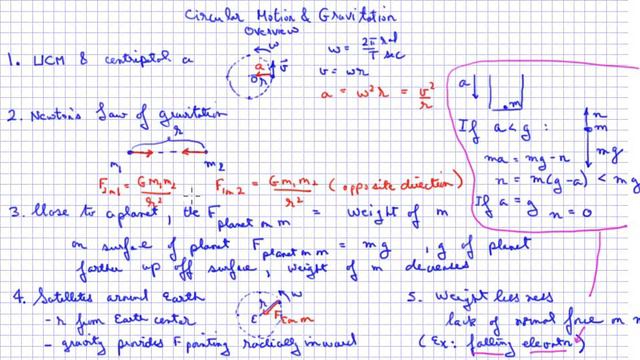 Circular Motion & Gravitation
Overview
1. UCM & centripetal a
ω
a
v⃗
O r
ω = 2π rad / T sec
v = ωr
a = ω²r = v²/r
2. Newton's Law of gravitation
r
m₁ m₂
F₂ₘ₁ = Gm₁m₂/r² F₁ₘ₂ = Gm₁m₂/r² (opposite direction)
3. Close to a planet, the F planet on m = weight of m
on surface of planet F planet on m = mg, g of planet
farther up off surface, weight of m decreases
4. Satellites around Earth
- r from Earth center
- gravity provides F pointing radially inward
r m ω
E F E on m
5. Weightlessness
lack of normal force on m
(Ex: falling elevator)
a↓ m
If a < g :
ma = mg - n
n = m(g-a) < mg
If a = g
n = 0
n
m
mg